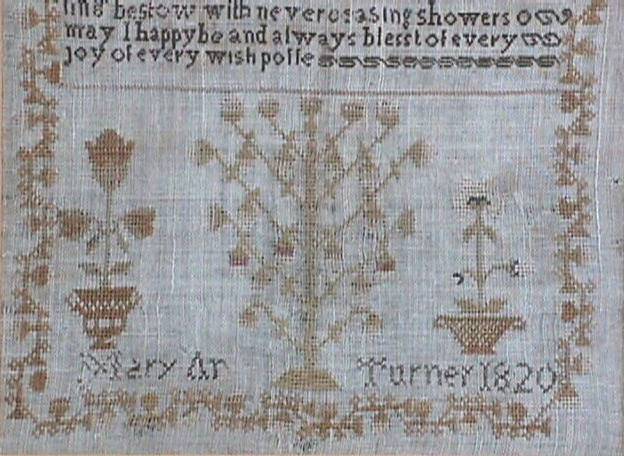 bestow with neverceasing showers
may I happy be and always blesst of every
joy of every wish posse
Mary An Turner 1820